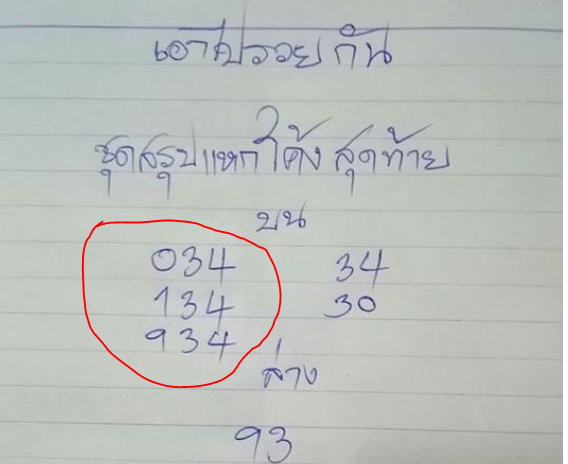 เอาไปรวยกัน
ชุดสรุปแหกโค้งสุดท้าย
บน
034 34
134 30
934
ล่าง
93